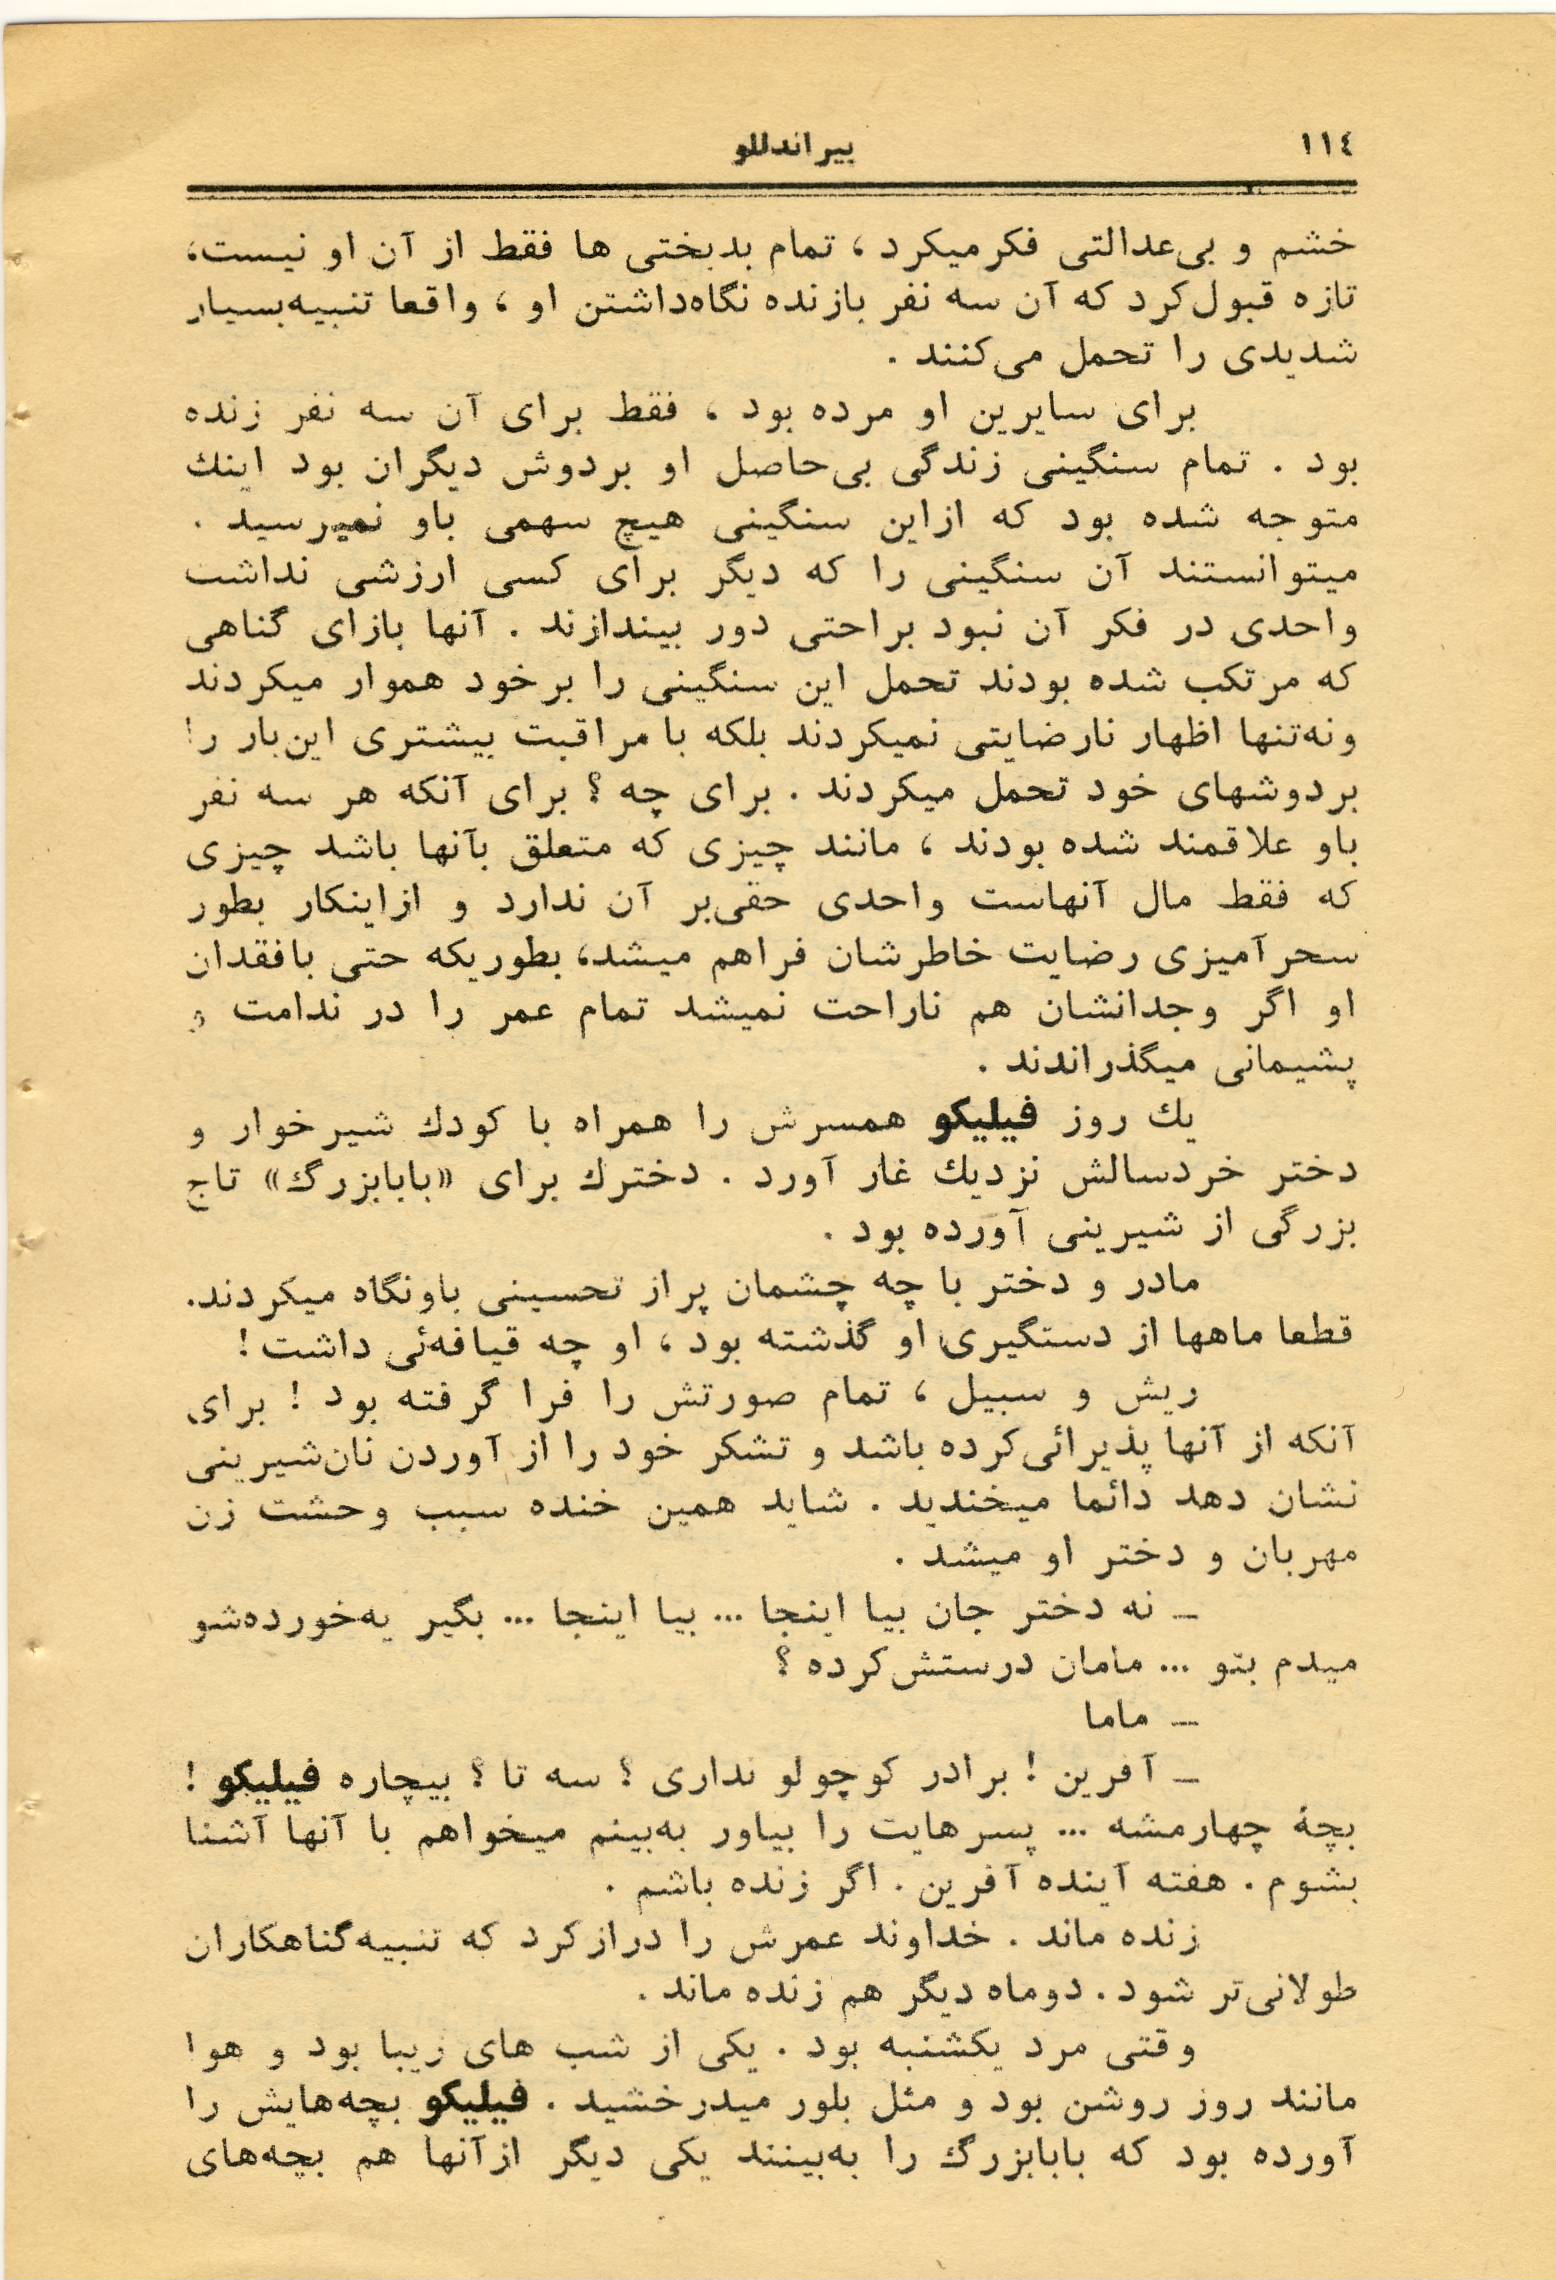 ١١٤
پیراندللو
خشم و بی‌عدالتی فکرمیکرد ، تمام بدبختی ها فقط از آن او نیست،
تازه قبول‌کرد که آن سه نفر بازنده نگاه‌داشتن او ، واقعا تنبیه‌بسیار
شدیدی را تحمل می‌کنند .
برای سایرین او مرده بود ، فقط برای آن سه نفر زنده
بود . تمام سنگینی زندگی بی‌حاصل او بردوش دیگران بود اینك
متوجه شده بود که ازاین سنگینی هیچ سهمی باو نمیرسید .
میتوانستند آن سنگینی را که دیگر برای کسی ارزشی نداشت
واحدی در فکر آن نبود براحتی دور بیندازند . آنها بازای گناهی
که مرتکب شده بودند تحمل این سنگینی را برخود هموار میکردند
ونه‌تنها اظهار نارضایتی نمیکردند بلکه با مراقبت بیشتری این‌بار را
بردوشهای خود تحمل میکردند . برای چه ؟ برای آنکه هر سه نفر
باو علاقمند شده بودند ، مانند چیزی که متعلق بآنها باشد چیزی
که فقط مال آنهاست واحدی حقی‌بر آن ندارد و ازاینکار بطور
سحرآمیزی رضایت خاطرشان فراهم میشد، بطوریکه حتی بافقدان
او اگر وجدانشان هم ناراحت نمیشد تمام عمر را در ندامت و
پشیمانی میگذراندند .
یك روز فیلیکو همسرش را همراه با کودك شیرخوار و
دختر خردسالش نزدیك غار آورد . دخترك برای «بابابزرگ» تاج
بزرگی از شیرینی آورده بود .
مادر و دختر با چه چشمان پراز تحسینی باونگاه میکردند.
قطعا ماهها از دستگیری او گذشته بود ، او چه قیافه‌ئی داشت !
ریش و سبیل ، تمام صورتش را فرا گرفته بود ! برای
آنکه از آنها پذیرائی‌کرده باشد و تشکر خود را از آوردن نان‌شیرینی
نشان دهد دائما میخندید . شاید همین خنده سبب وحشت زن
مهربان و دختر او میشد .
ــ نه دختر جان بیا اینجا ... بیا اینجا ... بگیر یه‌خورده‌شو
میدم بتو ... مامان درستش‌کرده ؟
ــ ماما
ــ آفرین ! برادر کوچولو نداری ؟ سه تا ؟ بیچاره فیلیکو !
بچۀ چهارمشه ... پسرهایت را بیاور به‌بینم میخواهم با آنها آشنا
بشوم . هفته آینده آفرین . اگر زنده باشم .
زنده ماند . خداوند عمرش را درازکرد که تنبیه‌گناهکاران
طولانی‌تر شود . دوماه دیگر هم زنده ماند .
وقتی مرد یکشنبه بود . یکی از شب های زیبا بود و هوا
مانند روز روشن بود و مثل بلور میدرخشید . فیلیکو بچه‌هایش را
آورده بود که بابابزرگ را به‌بینند یکی دیگر ازآنها هم بچه‌های